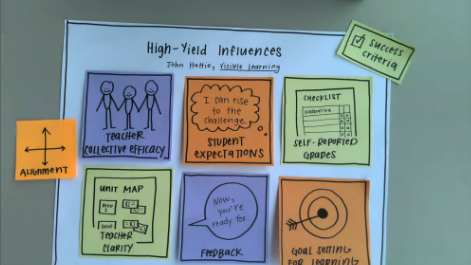 High-Yield Influences
John Hattie, Visible Learning
success
criteria
ALIGNMENT
TEACHER
COLLECTIVE EFFICACY
I can rise
to the
challenge.
STUDENT
EXPECTATIONS
CHECKLIST
SELF-REPORTED
GRADES
UNIT MAP
TEACHER
CLARITY
Now,
you're
ready for...
FEEDBACK
GOAL SETTING
FOR LEARNING